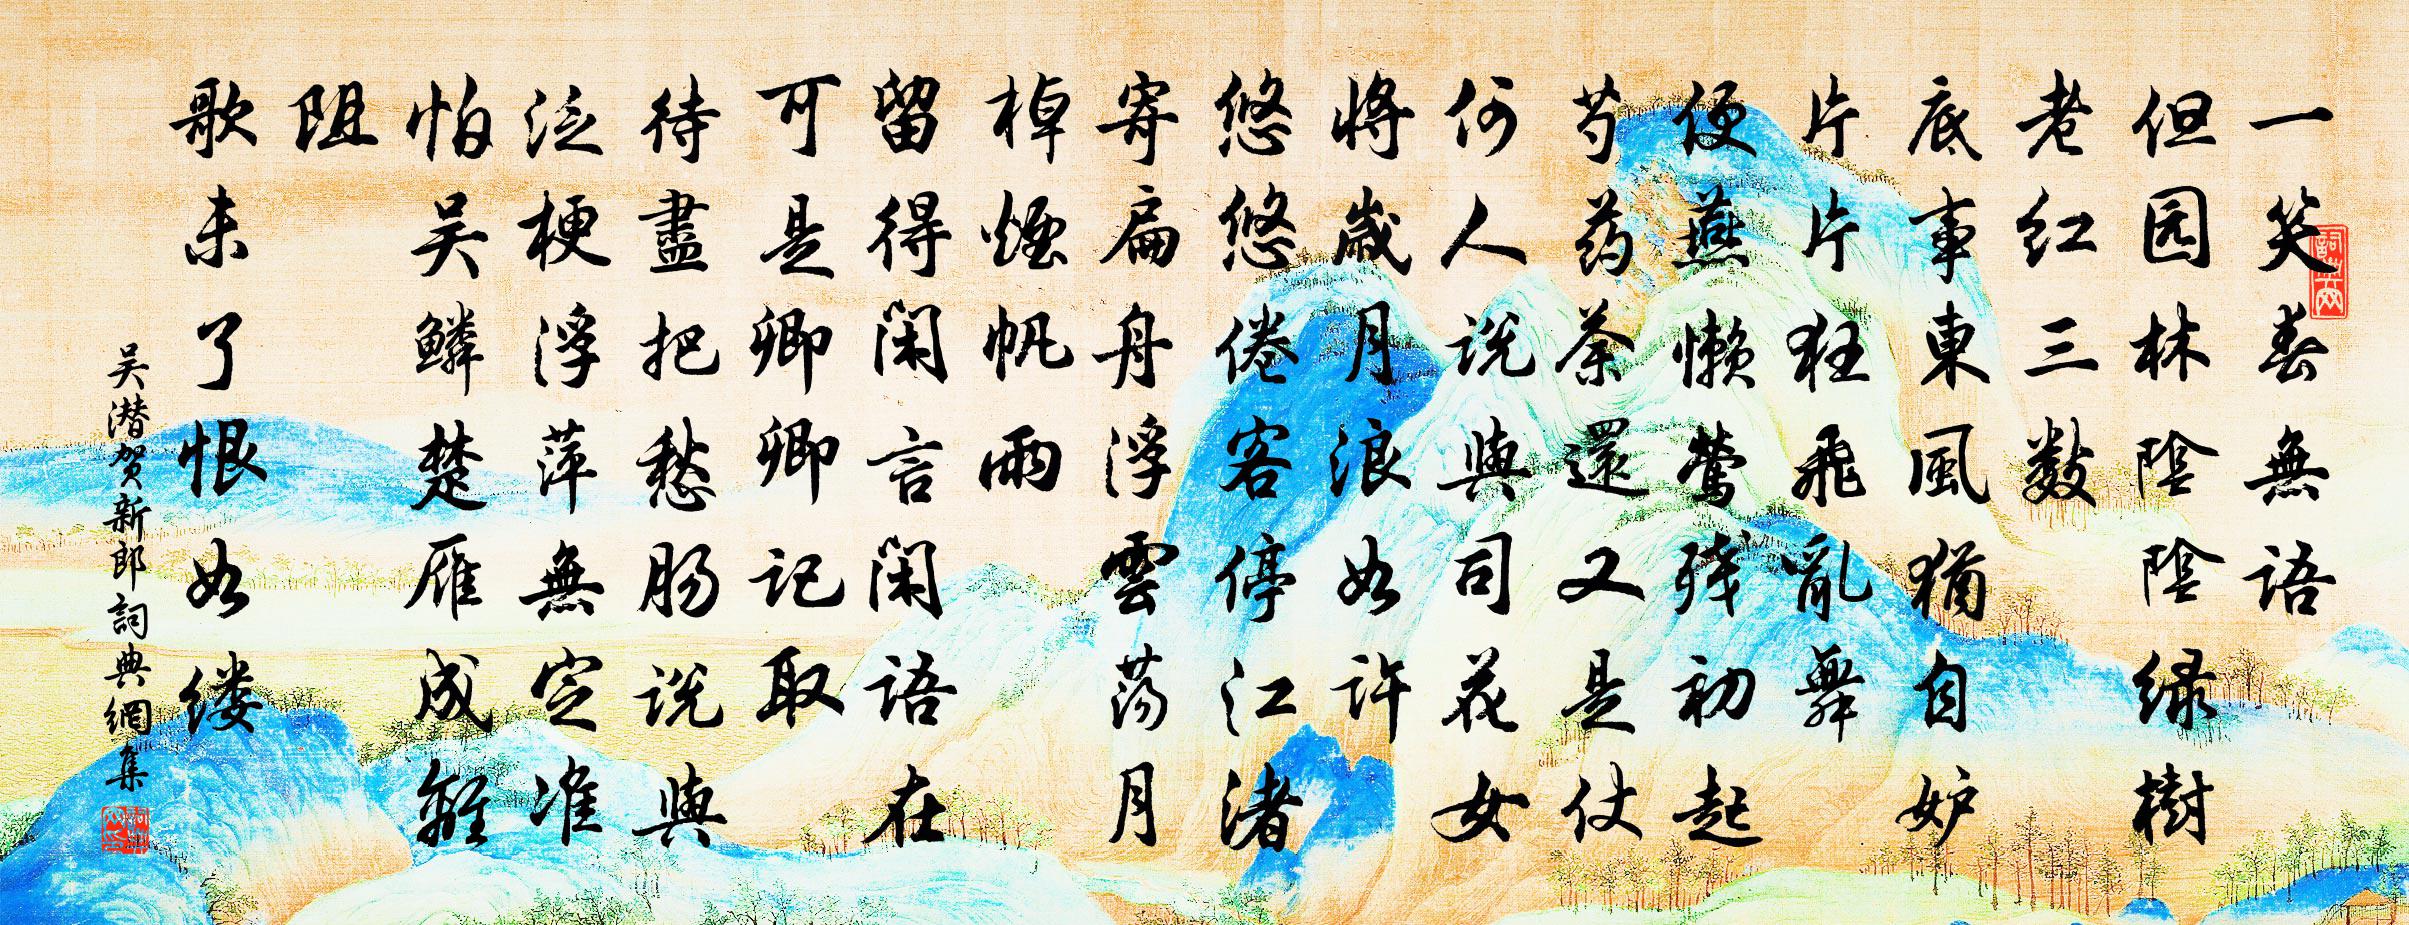 一笑春無語
但园林陰陰绿樹
老红三數
底事東風猶自妒
片片狂飛亂舞
便燕懒莺残初起
芍药荼還又是仗
何人说與司花女
將歲月浪如許
悠悠倦客停江渚
寄扁舟浮雲荡月
棹煙帆雨
留得闲言闲語在
可是卿卿記取
待盡把愁肠说與
泛梗浮萍無定准
怕吴鳞楚雁成難
阻
歌未了恨如缕
吴潜贺新郎詞典網集
詞典网